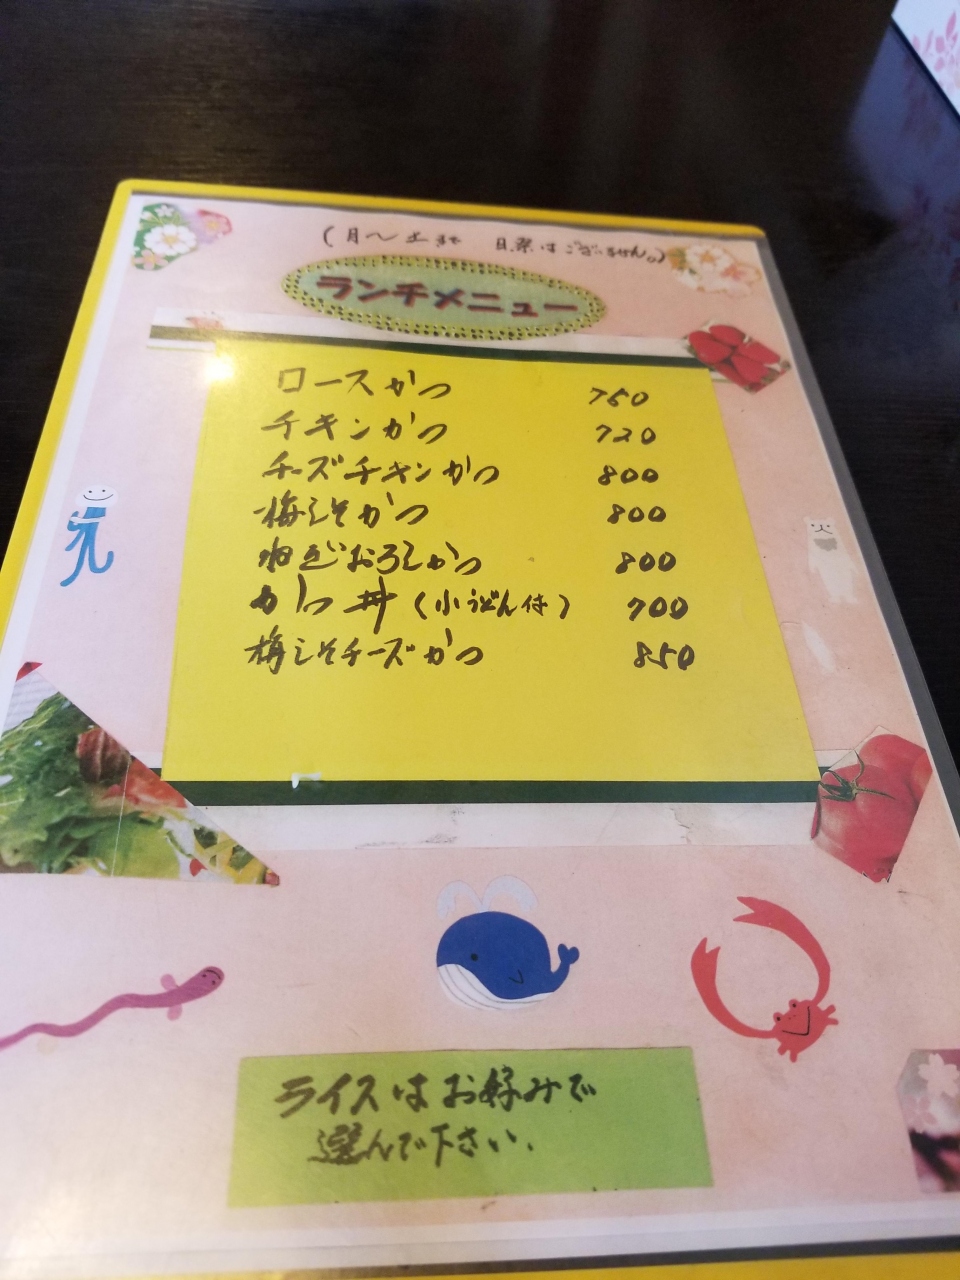 (月〜土まで 日祭はございません。)
ランチメニュー
ロースかつ 750
チキンかつ 720
チーズチキンかつ 800
梅しそかつ 800
ねぎおろしかつ 800
かつ丼(小うどん付) 700
梅しそチーズかつ 850
ライスはお好みで
選んで下さい.